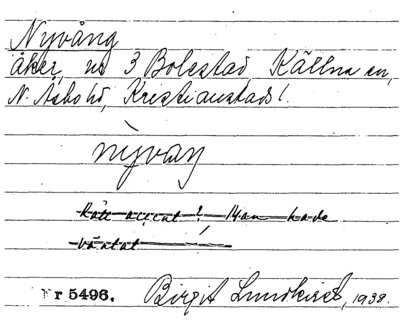 Nyvång
åker, nr 3, Bolestad, Källna sn,
N. Åsbo hd, Kristianstads l.
nỳvaŋ
Rätt accent! Man hade
väntat
Nr 5496. Birgit Lundkvist, 1938.